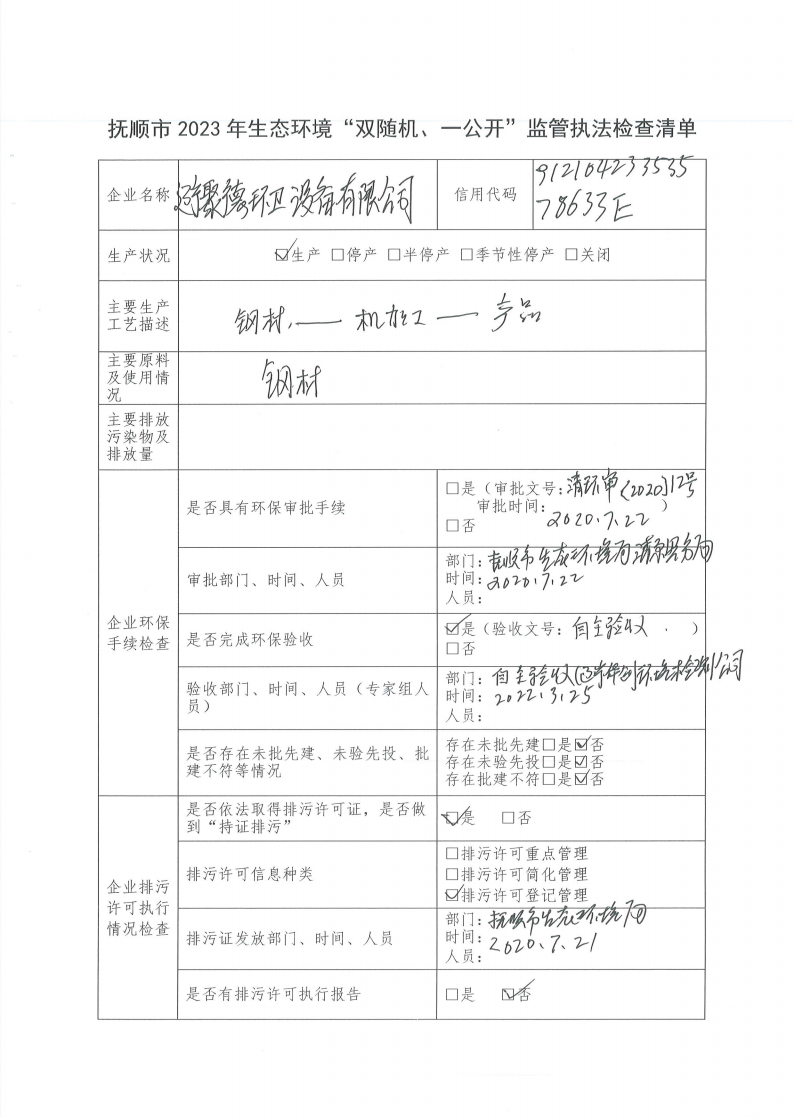 抚顺市 2023 年生态环境“双随机、一公开”监管执法检查清单
企业名称
聚德环卫设备有限公司
信用代码
912104233535
78633E
生产状况
☑生产 □停产 □半停产 □季节性停产 □关闭
主要生产
工艺描述
钢材 —— 机加工 — 产品
主要原料
及使用情
况
钢材
主要排放
污染物及
排放量
企业环保
手续检查
是否具有环保审批手续
□是（审批文号：清环审〔2020〕12号
审批时间： ）
2020.7.22
□否
审批部门、时间、人员
部门：抚顺市生态环境局清原县分局
时间：2020.7.22
人员：
是否完成环保验收
☑是（验收文号：自主验收 ）
□否
验收部门、时间、人员（专家组人
员）
部门：自主验收
时间：2022.3.25
人员：
是否存在未批先建、未验先投、批
建不符等情况
存在未批先建□是☑否
存在未验先投□是☑否
存在批建不符□是☑否
企业排污
许可执行
情况检查
是否依法取得排污许可证，是否做
到“持证排污”
☑是 □否
排污许可信息种类
□排污许可重点管理
□排污许可简化管理
☑排污许可登记管理
排污证发放部门、时间、人员
部门：抚顺市生态环境局
时间：2020.7.21
人员：
是否有排污许可执行报告
□是 ☑否